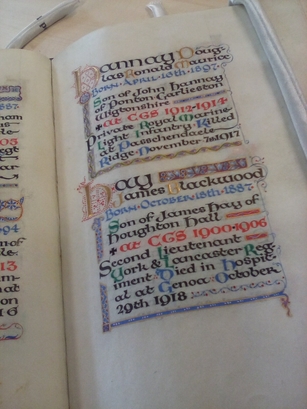 Hannay Doug-
las Ronald Maurice
Born · April · 18th · 1897
Son of John Hannay
of Ponton Garlieston
Wigtonshire
at CGS 1912-1914
Private Royal Marine
Light Infantry Killed
at Passchendaele
Ridge November 7th 1917
Hay
James Blackwood
Born · October 18th · 1887
Son of James Hay of
Houghton Hall
at CGS 1900-1906
Second Lieutenant
York & Lancaster Reg-
iment Died in Hospit-
al at Genoa October
29th 1918